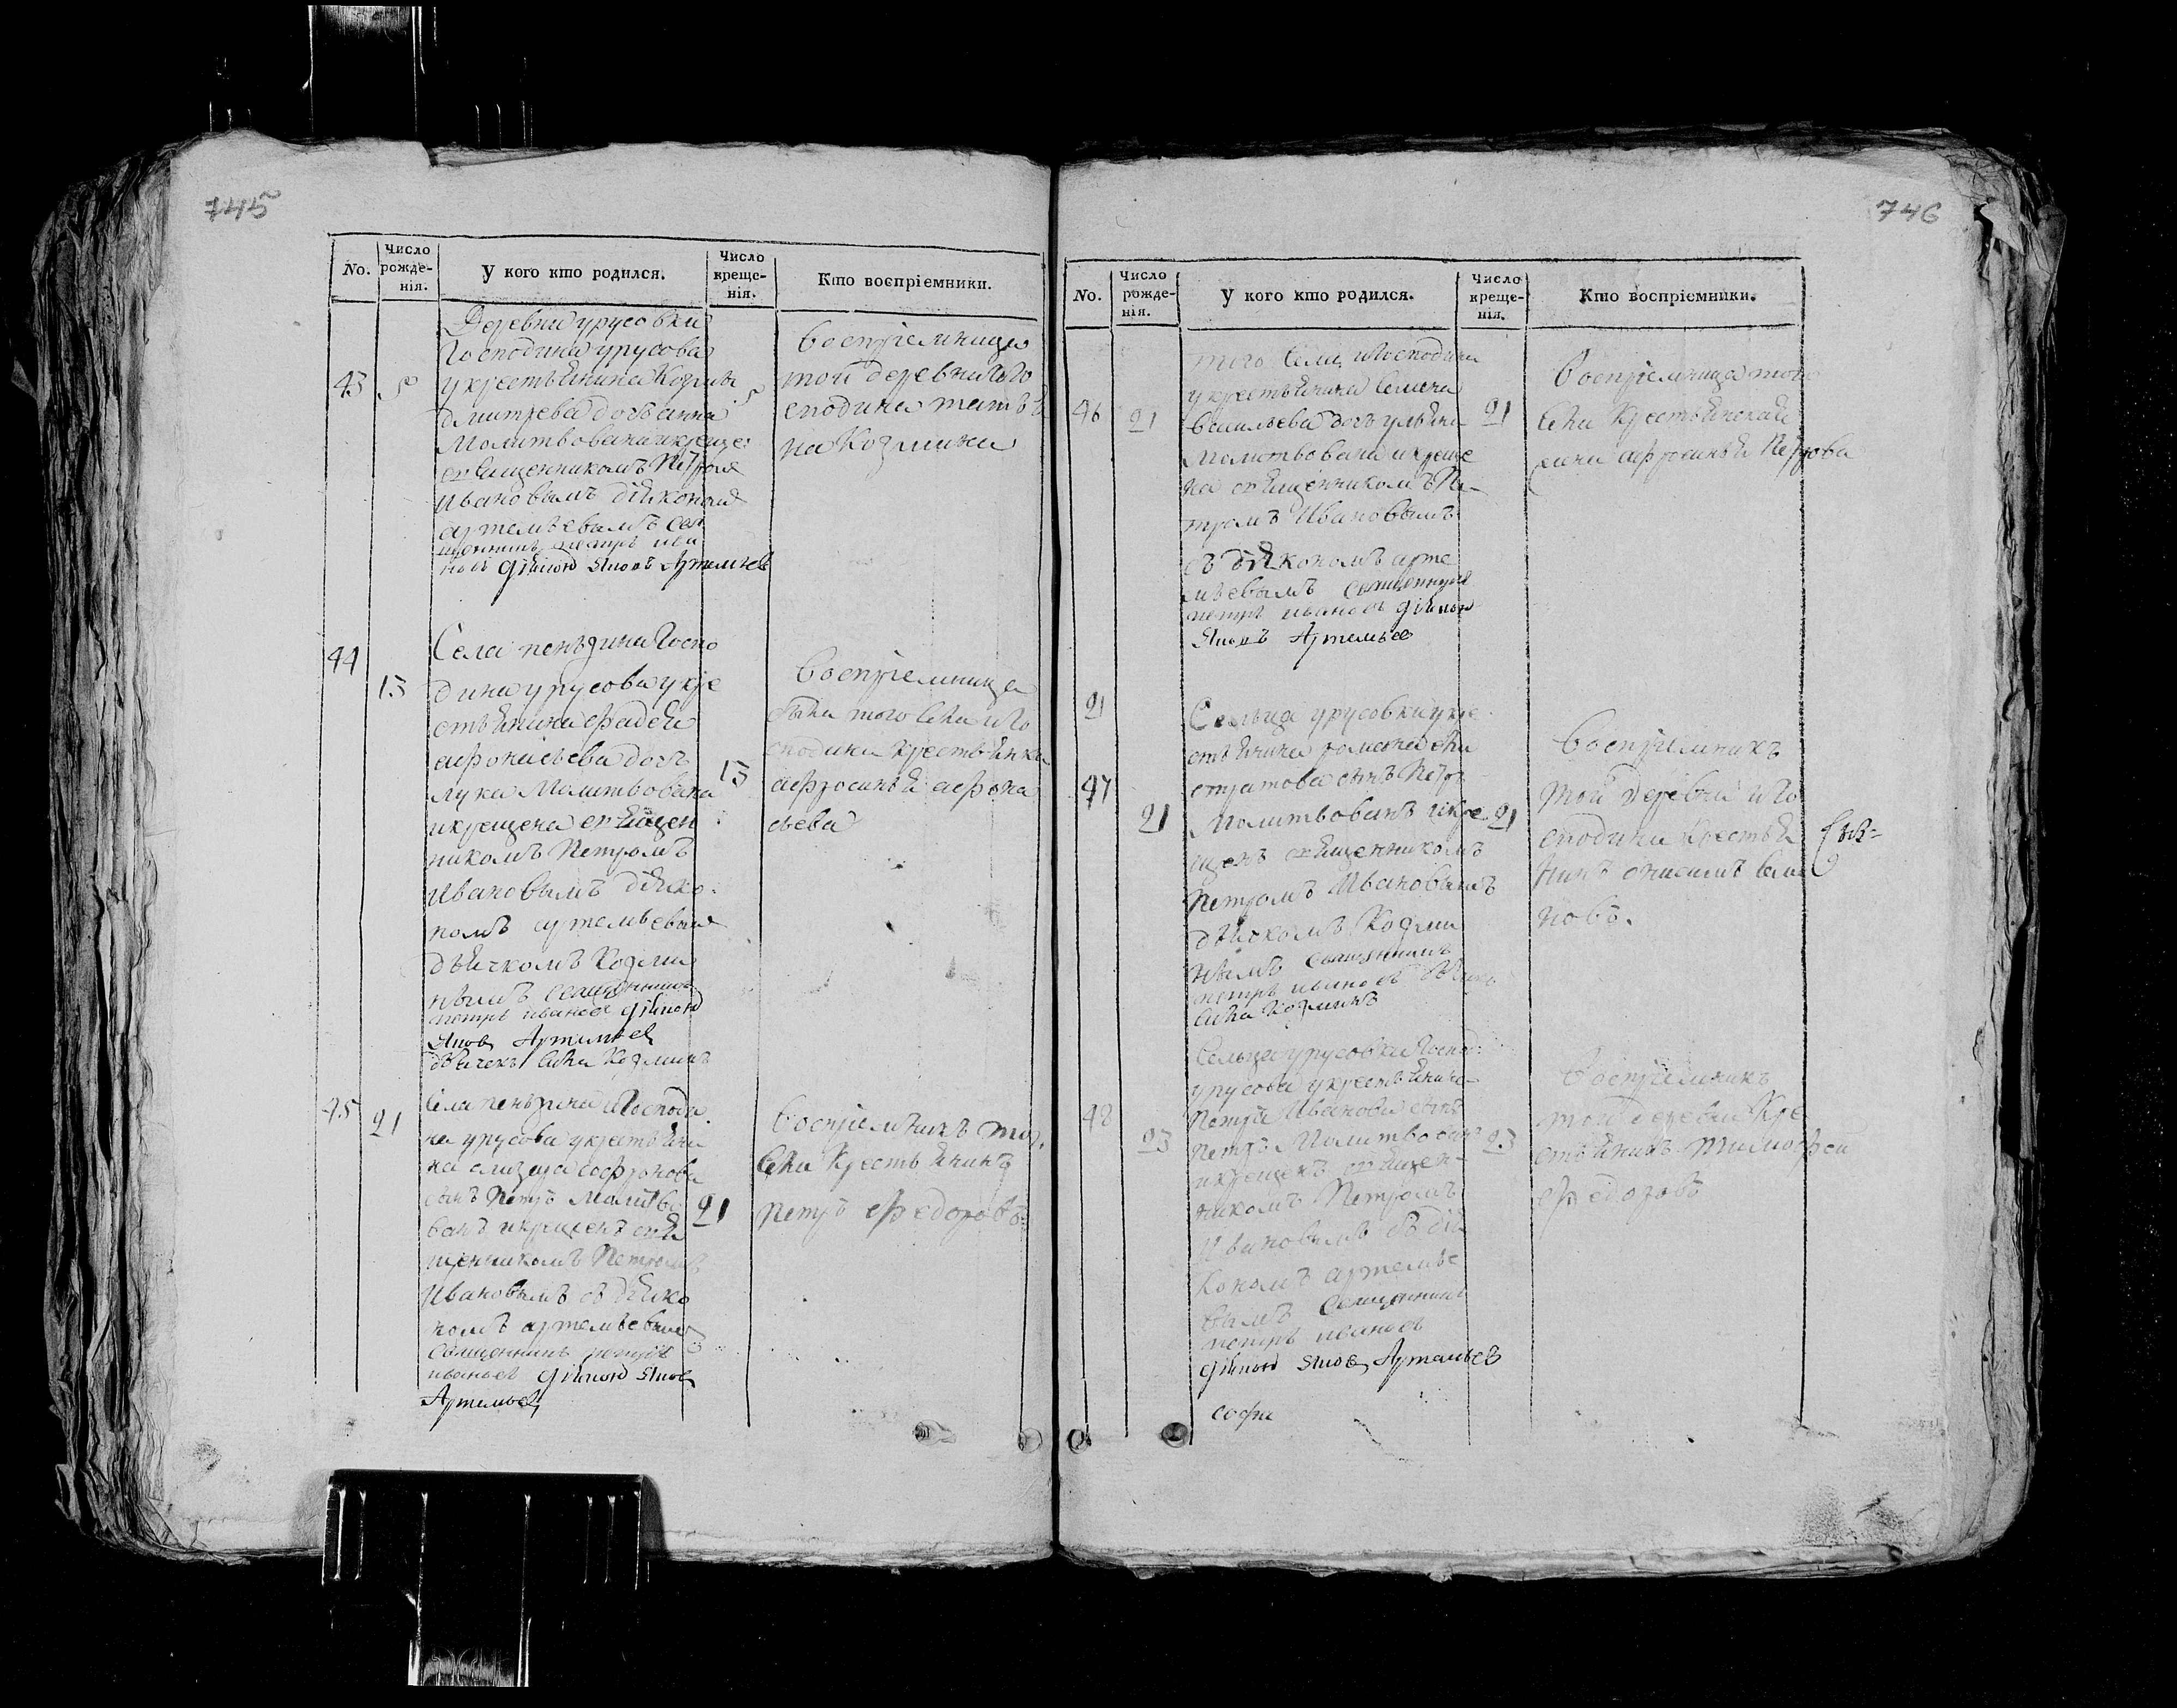 745
No.
Число рожде-нія.
У кого кто родился.
Число креще-нія.
Кто воспріемники.
43
5
Деревни урусовки
Господина урусова
у крестьянина Козмы
дмитрева дочь анна
Молитвована и креще:
священникомъ Петром
Ивановымъ діяконом
артемьевымъ свя
щенникъ петръ ива
новъ діяконъ Яковъ Артемьевъ
5
Воспріемница
той деревни и Го
сподина татья
на Козмина
44
13
Села пенздина Госпо
дина урусова у кре
стьянина фадея
афонасьева дочь
лука Молитвована
и крещена священ
никомъ Петромъ
Ивановымъ діяко:
номъ артемьевым
дьячкомъ Козми
нымъ священникъ
петръ ивановъ діяконъ
Яковъ Артемьевъ
дьячекъ Козминъ
13
Воспріемница
была того села и Го
сподина крестьянка
афросинья афона
сьева
45
21
Села господи
на урусова у крестьяни
на софронова
сынъ Петръ Молитво
ванъ и крещенъ свя
щенникомъ Петромъ
Ивановымъ съ діяко
номъ артемьевым
Священникъ петръ
ивановъ діяконъ Яковъ
Артемьевъ
21
Воспріемникъ то
села Крестьянинъ
петръ федоровъ
746
No.
Число рожде-нія.
У кого кто родился.
Число креще-нія.
Кто воспріемники.
46
21
того Села и Господина
у крестьянина Семена
васильева дочь ульяна
Молитвована и креще
на священникомъ Пе-
тромъ Ивановымъ
съ діякономъ арте
мьевымъ Священникъ
петръ ивановъ діяконъ
Яковъ Артемьевъ
21
Воспріемница того
села Крестьянская
жена афросинья Петрова
21
47
21
Сельца урусовки у кре
стьянина
сынъ Петръ
Молитвованъ и кре
щенъ священникомъ
Петромъ Ивановымъ
дьячкомъ Козми
нымъ священникъ
петръ ивановъ
Козминъ
21
Воспріемникъ
той Деревни и Го
сподина Крестья
нинъ анисимъ Семе
новъ.
48
23
Сельца урусовки Господ:
урусова у крестьянина
Петра Иванова сынъ
петръ Молитвованъ
и крещенъ священ-
никомъ Петромъ
Ивановымъ съ дія
кономъ артемье
вымъ Священникъ
петръ ивановъ
діяконъ Яковъ Артемьевъ
софи
23
Воспріемникъ
той деревни Кре
стьянинъ тимофеи
федоровъ